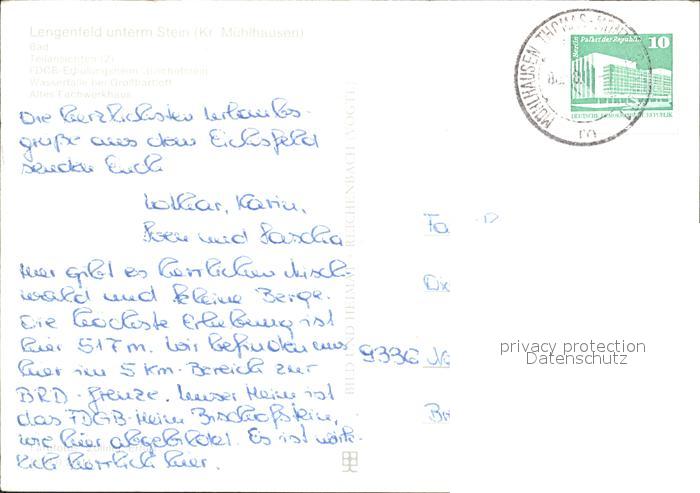 Lengenfeld unterm Stein (Kr. Mühlhausen)
Bad
Teilansichten (2)
FDGB-Erholungsheim „Bischofstein“
Wasserfälle bei Großbartloff
Altes Fachwerkhaus
Die herzlichsten Urlaubs-
grüße aus dem Eichsfeld
senden Euch
Lothar, Karin,
Sven und Sascha
Hier gibt es herrlichen Misch-
wald und kleine Berge.
Die höchste Erhebung ist
hier 517m. Wir befinden uns
hier im 5 Km-Bereich zur
BRD-Grenze. Unser Heim ist
das FDGB-Heim Bischofstein,
wie hier abgebildet. Es ist wirk-
lich herrlich hier.
BILD UND HEIMAT REICHENBACH (VOGTL)
MÜHLHAUSEN THOMAS-MÜNTZER
Berlin Palast der Republik
10
DEUTSCHE DEMOKRATISCHE REPUBLIK
Fa
Die
9336
privacy protection
Datenschutz